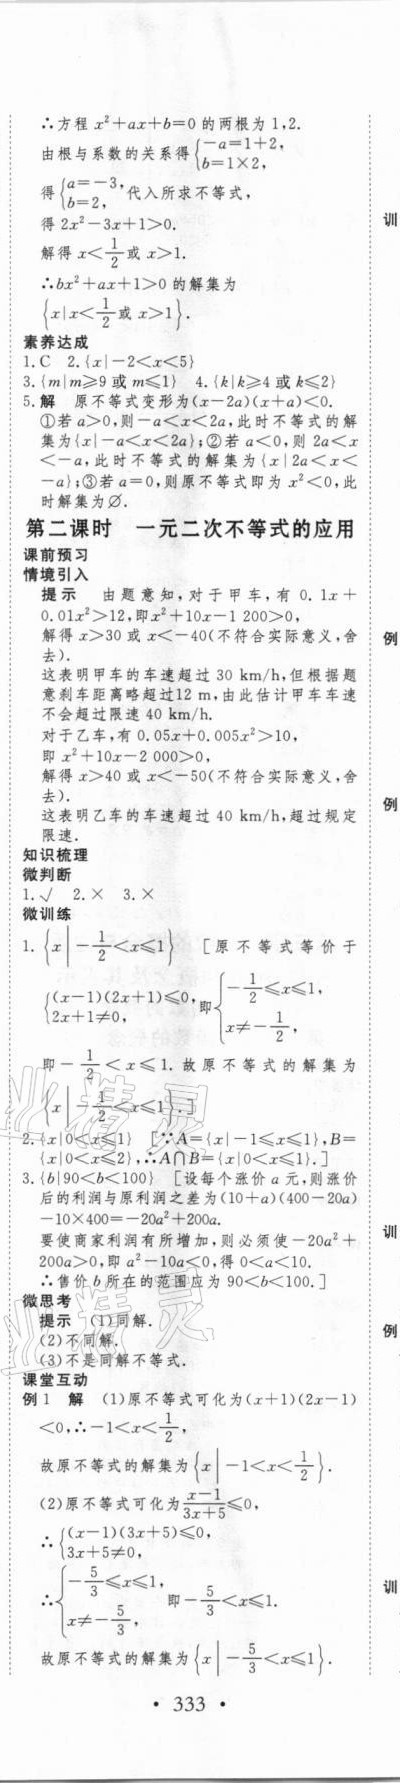 ∴方程 x²+ax+b=0 的两根为 1,2.
由根与系数的关系得{-a=1+2, b=1×2,
得{a=-3, b=2, 代入所求不等式,
得 2x²-3x+1>0.
解得 x<1/2 或 x>1.
∴bx²+ax+1>0 的解集为
{x|x<1/2 或 x>1}.
素养达成
1.C 2.{x|-2<x<5}
3.{m|m≥9 或 m≤1} 4.{k|k≥4 或 k≤2}
5.解 原不等式变形为(x-2a)(x+a)<0.
①若 a>0,则-a<x<2a,此时不等式的解
集为{x|-a<x<2a};②若 a<0,则 2a<x
<-a,此时不等式的解集为{x|2a<x<
-a};③若 a=0,则原不等式即为 x²<0,此
时解集为∅.
第二课时 一元二次不等式的应用
课前预习
情境引入
提示 由题意知,对于甲车,有 0.1x+
0.01x²>12,即x²+10x-1 200>0,
解得 x>30 或 x<-40(不符合实际意义,舍
去).
这表明甲车的车速超过 30 km/h,但根据题
意刹车距离略超过12 m,由此估计甲车车速
不会超过限速 40 km/h.
对于乙车,有 0.05x+0.005x²>10,
即 x²+10x-2 000>0,
解得 x>40 或 x<-50(不符合实际意义,舍
去).
这表明乙车的车速超过 40 km/h,超过规定
限速.
知识梳理
微判断
1.√ 2.× 3.×
微训练
1.{x|-1/2<x≤1} [原不等式等价于
{(x-1)(2x+1)≤0, 2x+1≠0, 即{-1/2≤x≤1, x≠-1/2,
即-1/2<x≤1.故原不等式的解集为
{x|-1/2<x≤1}.]
2.{x|0<x≤1} [∵A={x|-1≤x≤1},B=
{x|0<x≤2},∴A∩B={x|0<x≤1}.]
3.{b|90<b<100} [设每个涨价 a 元,则涨价
后的利润与原利润之差为(10+a)(400-20a)
-10×400=-20a²+200a.
要使商家利润有所增加,则必须使-20a²+
200a>0,即 a²-10a<0,得 0<a<10.
∴售价 b 所在的范围应为 90<b<100.]
微思考
提示 (1)同解.
(2)不同解.
(3)不是同解不等式.
课堂互动
例 1 解 (1)原不等式可化为(x+1)(2x-1)
<0,∴-1<x<1/2,
故原不等式的解集为{x|-1<x<1/2}.
(2)原不等式可化为(x-1)/(3x+5)≤0,
∴{(x-1)(3x+5)≤0, 3x+5≠0,
∴{-5/3≤x≤1, x≠-5/3, 即-5/3<x≤1.
故原不等式的解集为{x|-5/3<x≤1}.
· 333 ·
训
例
例
训
例
训
作业精灵
作业精灵